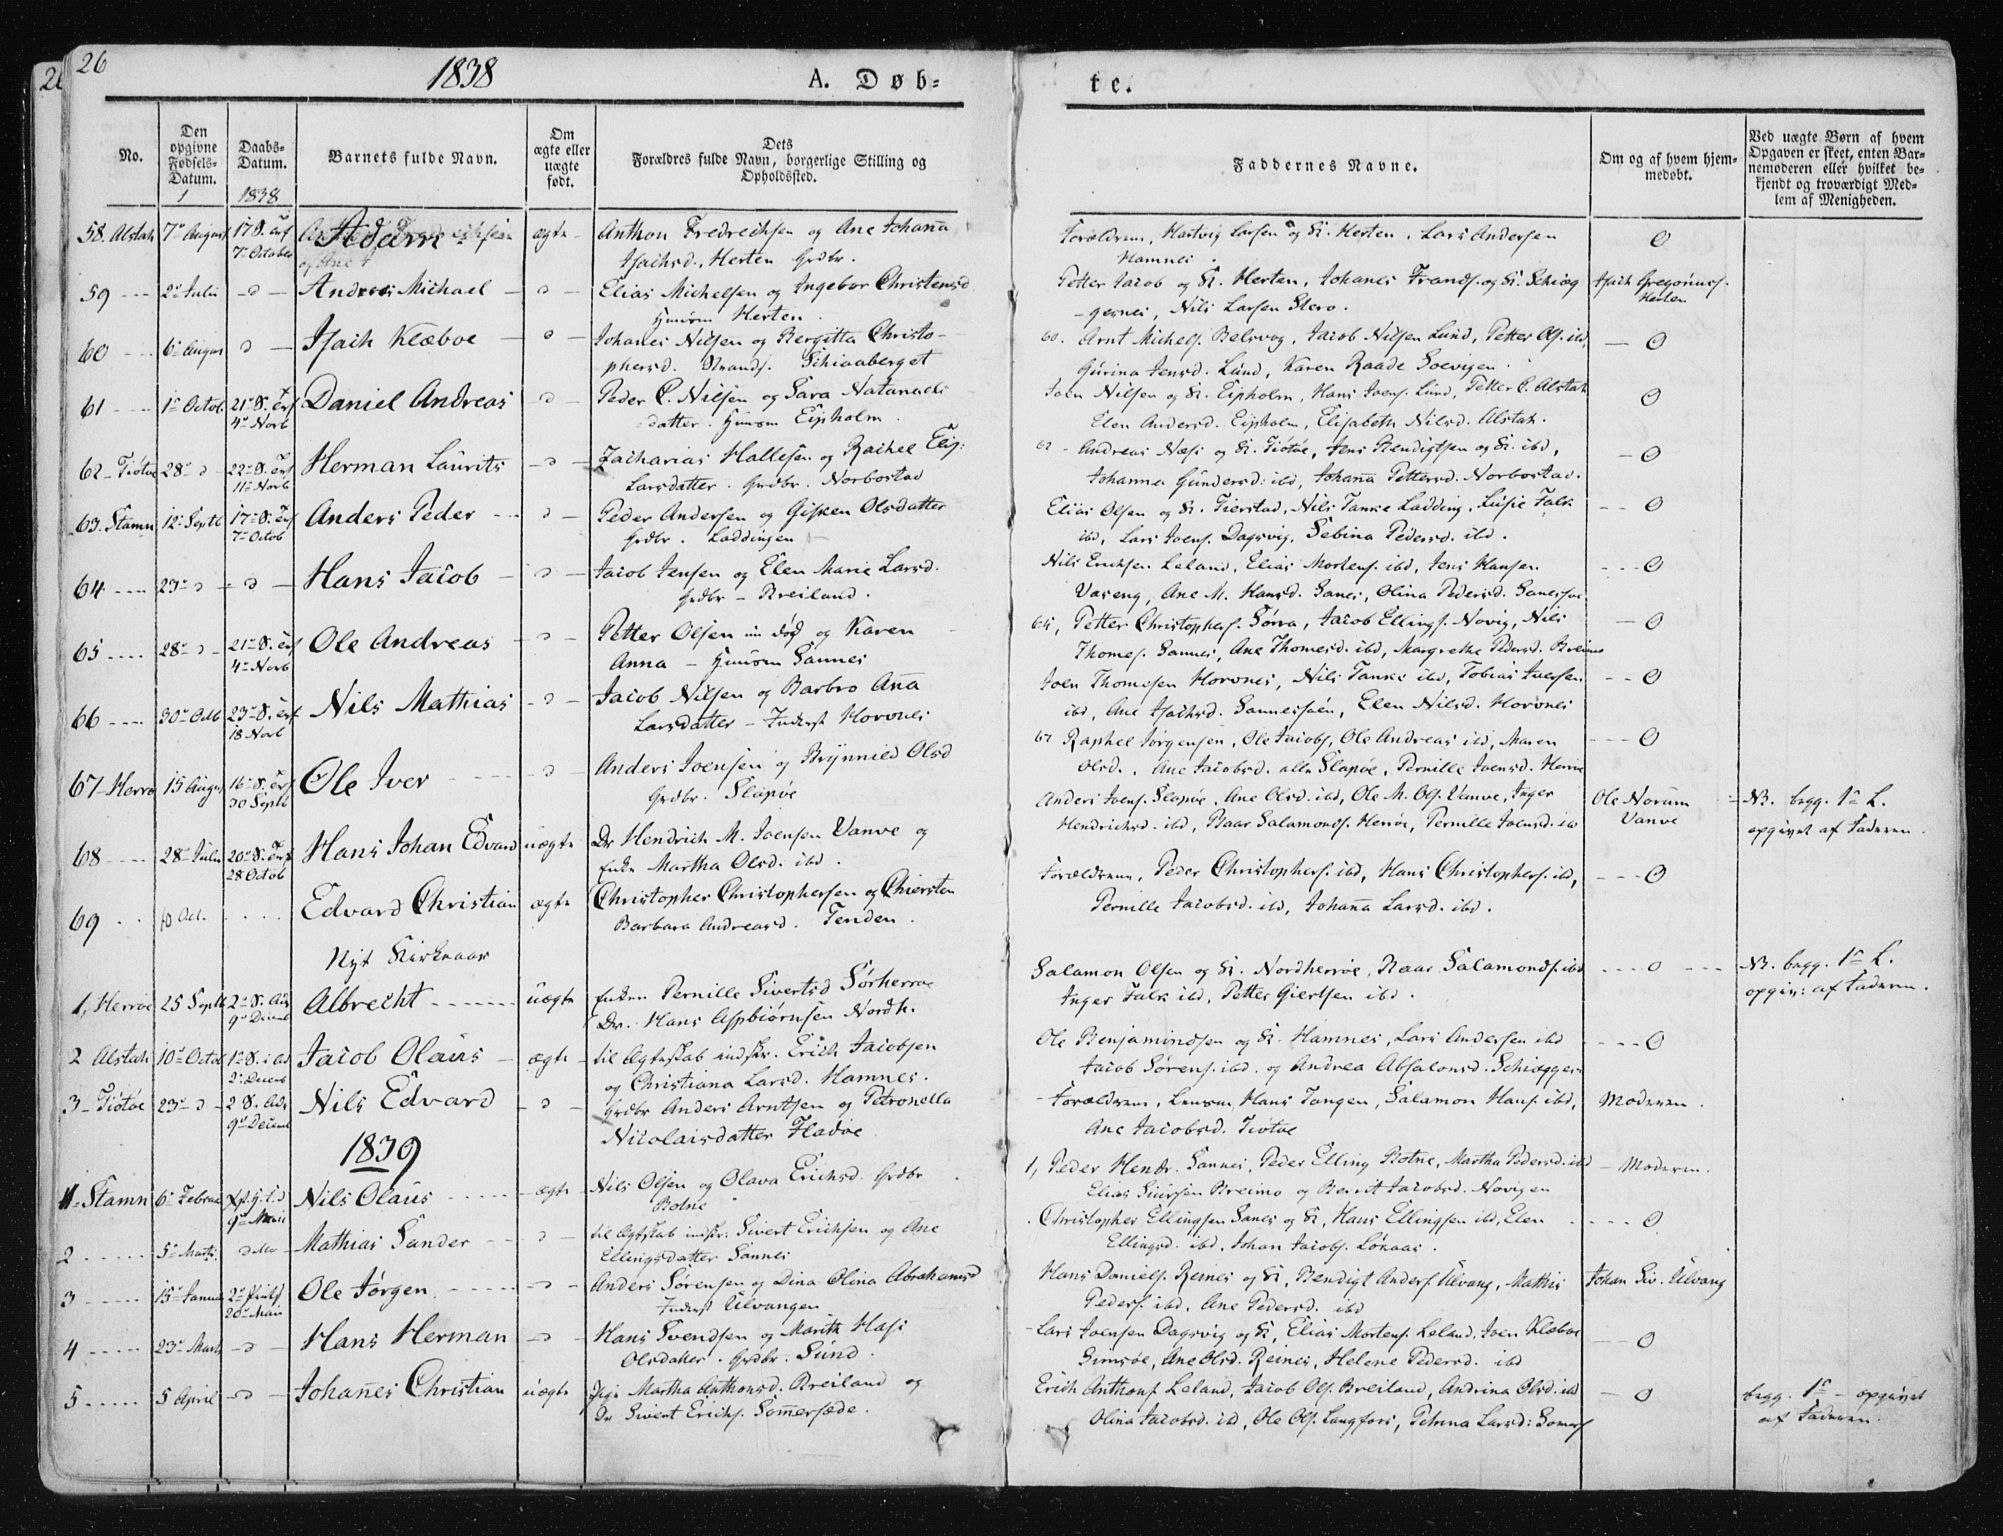 26
1838
A. Døb-
te.
No.
Den opgivne Fødsels-Datum.
Daabs-Datum.
1838
Barnets fulde Navn.
Om ægte eller uægte født.
Dets Forældres fulde Navn, borgerlige Stilling og Opholdssted.
Faddernes Navne.
Om og af hvem hjemmedøbt.
Ved uægte Børn af hvem Opgaven er skeet, enten Barnemoderen eller hvilket bekjendt og troværdigt Medlem af Menigheden.
58. Alstah 7de August 7de October Adam ægte Anthon Fredrechsen og Ane Johana
Isachsd. Herten Grdbr.
Forældrene, Hartvig Larsen og K. Herten. Lars Andersen
Hamnes.
59 2den Juli Andreas Michael Elias Michelsen og Ingebor Christensd
Huusm Herten.
Petter Jacob og K. Herten, Johanes Frands. og K.
Nils Larsen
Isach Gregoriuss. Herten
60 6te August Isach Klæboe Johanes Nilsen og Bergitta Christo-
phersd. Strands.
60. Arnt Michels. Belsvog, Jacob Nilsen Lund, Petter Ols. ibd
Gurina Jensd. Lund, Karen Raade
61 1ste Octob. 4de Novb Daniel Andreas Peder C. Nilsen og Sara Natanaels
datter. Huusm Eipholm.
Joen Nilsen og K. Eipholm, Hans Joens. Lund, Petter C. Alstah
Elen Andersd. Eipholm, Elisabeth Nilsd. Alstah.
62 Tiøtøe 28de 11te Novb Herman Laurits Zacharias Hallesen og Rachel
Larsdatter. Grdbr. Norbostad
62 Andreas Næss og K. Tiøtøe, Jens Bendigtsen og K. ibd,
Johanna Gundersd: ibd, Johana Pettersd. Norbostad.
63. Stamn 12te Septb 7de Octob Anders Peder Peder Andersen og Gisken Olsdatter
Grdbr. Laddingen
Elias Olsen og K. Nils Tanke Ladding, Lusie Falk
ibd, Lars Joens. Dagsvig, Sebina Pedersd. ibd.
64 23de Hans Jacob Jacob Jensen og Elen Marie Larsd.
Grdbr - Breiland.
Nils Erichsen Leland, Elias Mortens. ibd, Jens Hansen
Ane M. Hansd. Sanes, Olina Pedersd.
65 28de 4de Novb Ole Andreas Petter Olsen nu død og Karen
Anna - Huusm Sannes
65, Petter Christophers. Sørra, Jacob Ellings. Novig, Nils
Thomes. Sannes, Ane Thomesd. ibd, Margrethe Pedersd. Breimo
66 30te Octb 18 Novb Nils Mathias Jacob Nilsen og Barbro Ana
Larsdatter - Inderst Hovones
Joen Thomesen Hovones, Nils Tanke ibd, Tobias Iversen
ibd, Ane Isachsd. Elen Nilsd. Hovones
67 Herrø 15 August 30 Septb Ole Iver Anders Joensen og Brynnild Olsd
Grdbr. Slapøe
67 Raphel Jørgensen, Ole Jacobs, Ole Andreas ibd, Maren
Olsd., Ane Jacobsd. alle Slapøe, Pernille Joensd. Herrøe
68 28de Julii 28 Octob Hans Johan Edvard uægte Dr Hendrich M. Joensen Vanve og
Enke Martha Olsd. ibd.
Anders Joens. Slapøe, Ane Olsd. ibd, Ole M. Ols. Vanve, Inger
Hendrichsd. ibd, Baar Salamonds. Herrøe, Pernille Joensd. ibd
Ole Norum
Vanve
NB. begg. 1ste L.
opgivet af Faderen.
69 10 Oct. Edvard Christian ægte Christopher Christophersen og Chiersten
Barbara Andreasd. Tenden.
Forældrene, Peder Christophers. ibd, Hans Christophers. ibd,
Pernille Jacobsd. ibd, Johana Larsd. ibd.
Nyt Kirkeaar
1, Herrøe 25 Septb 9de Decemb Albrecht uægte Enken Pernille Sivertsd Sørherrøe
Dr. Hans Asbiørnsen Nordh.
Salamon Olsen og K. Nordherrøe, Baar Salamonds. ibd
Inger Falk ibd, Petter Giertsen ibd.
NB. begg. 1ste L.
opgiv: af Faderen.
2 Alstah 10de Octob 2 Decemb Jacob Olaus ægte til Ægteskab indskr. Erich Jacobsen
og Christiana Larsd. Hamnes.
Ole Benjamindsen og K. Hamnes, Lars Andersen ibd
Jacob Sørens. ibd. og Andrea Absalonsd.
3 Tiøtøe 23de 9de Decemb Nils Edvard Grdbr Anders Arntsen og Petronella
Nicolaisdatter Fladøe
Forældrene, Hans Tangen, Salamon Hans. ibd,
Ane Jacobsd. Tiotøe
Moderen.
1839
1 Stamn 6te Februar Nils Olaus ægte Nils Olsen og Olava Erichsd. Grdbr
Botne
1, Peder Hendr. Sannes, Peder Elling Botne, Martha Pedersd. ibd
Elias Siursen Breimo og Berrit Jacobsd. Novigen
Moderen.
2 5te Marts Mathias Sander til Ægteskab indskr. Sivert Erichsen og Ane
Ellingsdatter Sannes
Christopher Ellingsen Sanes og K, Hans Ellingsen ibd, Elen
Ellingsd. ibd, Johan Jacobs. Lønaas.
3 15de Januar 20de Mai Ole Jørgen Anders Sørensen og Dina Olina Abrahamsd
Inderst Ulvangen
Hans Daniels. Reines og K, Bendigt Anders Ulvang, Mathis
Peders. ibd, Ane Pedersd. ibd
Johan Siv. Ulvang
4 23de Marts Hans Herman Hans Svendsen og Marith
Olsdatter. Grdbr. Sund.
Lars Joensen Dagsvig og K, Elias Mortens. Leland, Joen Klæboe
Simsøe, Ane Olsd. Reines, Helene Pedersd. ibd
5 5 April Johanes Christian uægte Pige Martha Anthonsd. Breiland og
Dr Sivert Erichs. Sommersæde.
Erich Anthons Leland, Jacob Ols. Breiland, Andrina Olsd. ibd
Olina Jacobsd. ibd, Ole Ols. Langfors, Petrina Larsd:
begg. 1ste - opgivet
af Faderen.